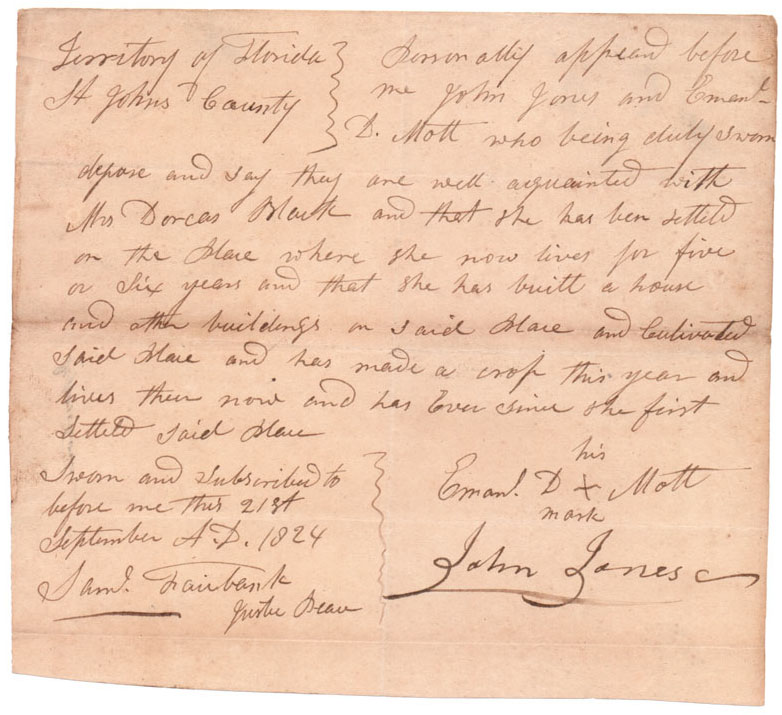 Territory of Florida
St Johns County
Personally appeard before
me John Jones and Emanl
D. Mott who being duly sworn
depose and say they are well acquainted with
Mrs Dorcas Black and that she has ben setteld
on the Place where she now lives for five
or Six years and that she has built a house
and other buildings on said Place and Cultivated
said Place and has made a crop this year and
lives their now and has Ever since she first
setteld said Place
his
Emanl. D X Mott
mark
John Jones
Sworn and subscribed to
before me this 21st
September A.D. 1824
Saml. Fairbank
Justice Peace